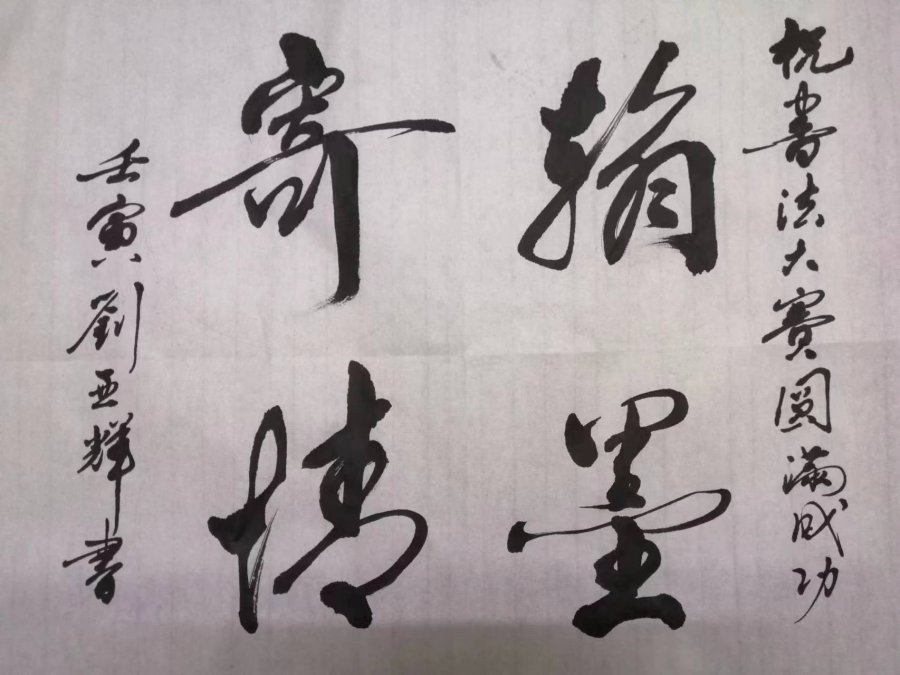 祝書法大賽圆滿成功
翰墨
寄情
壬寅劉亚輝書